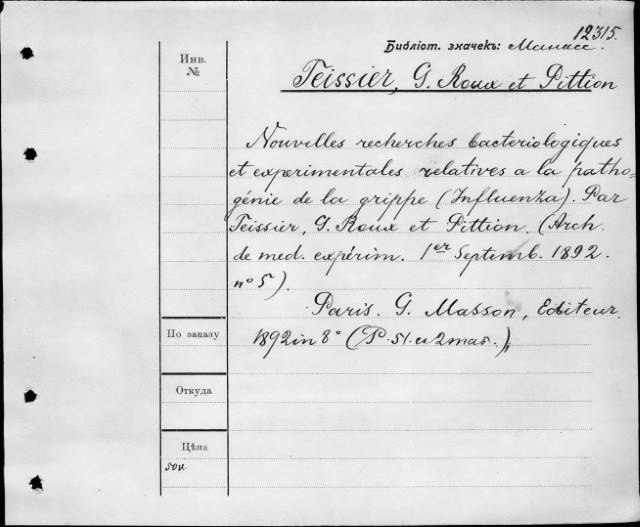 12315.
Библіот. значекъ: Манасс.
Инв.
№
Teissier, G. Roux et Pittion
Nouvelles recherches bacteriologiques
et experimentales relatives a la patho-
génie de la grippe (Influenza). Par
Teissier, G. Roux et Pittion. (Arch.
de med. expérim. 1er Septemb. 1892.
no 5).
Paris. G. Masson, Editeur.
По заказу
1892 in 8° (P. 51. et 2 таб.),
Откуда
Цѣна
50к